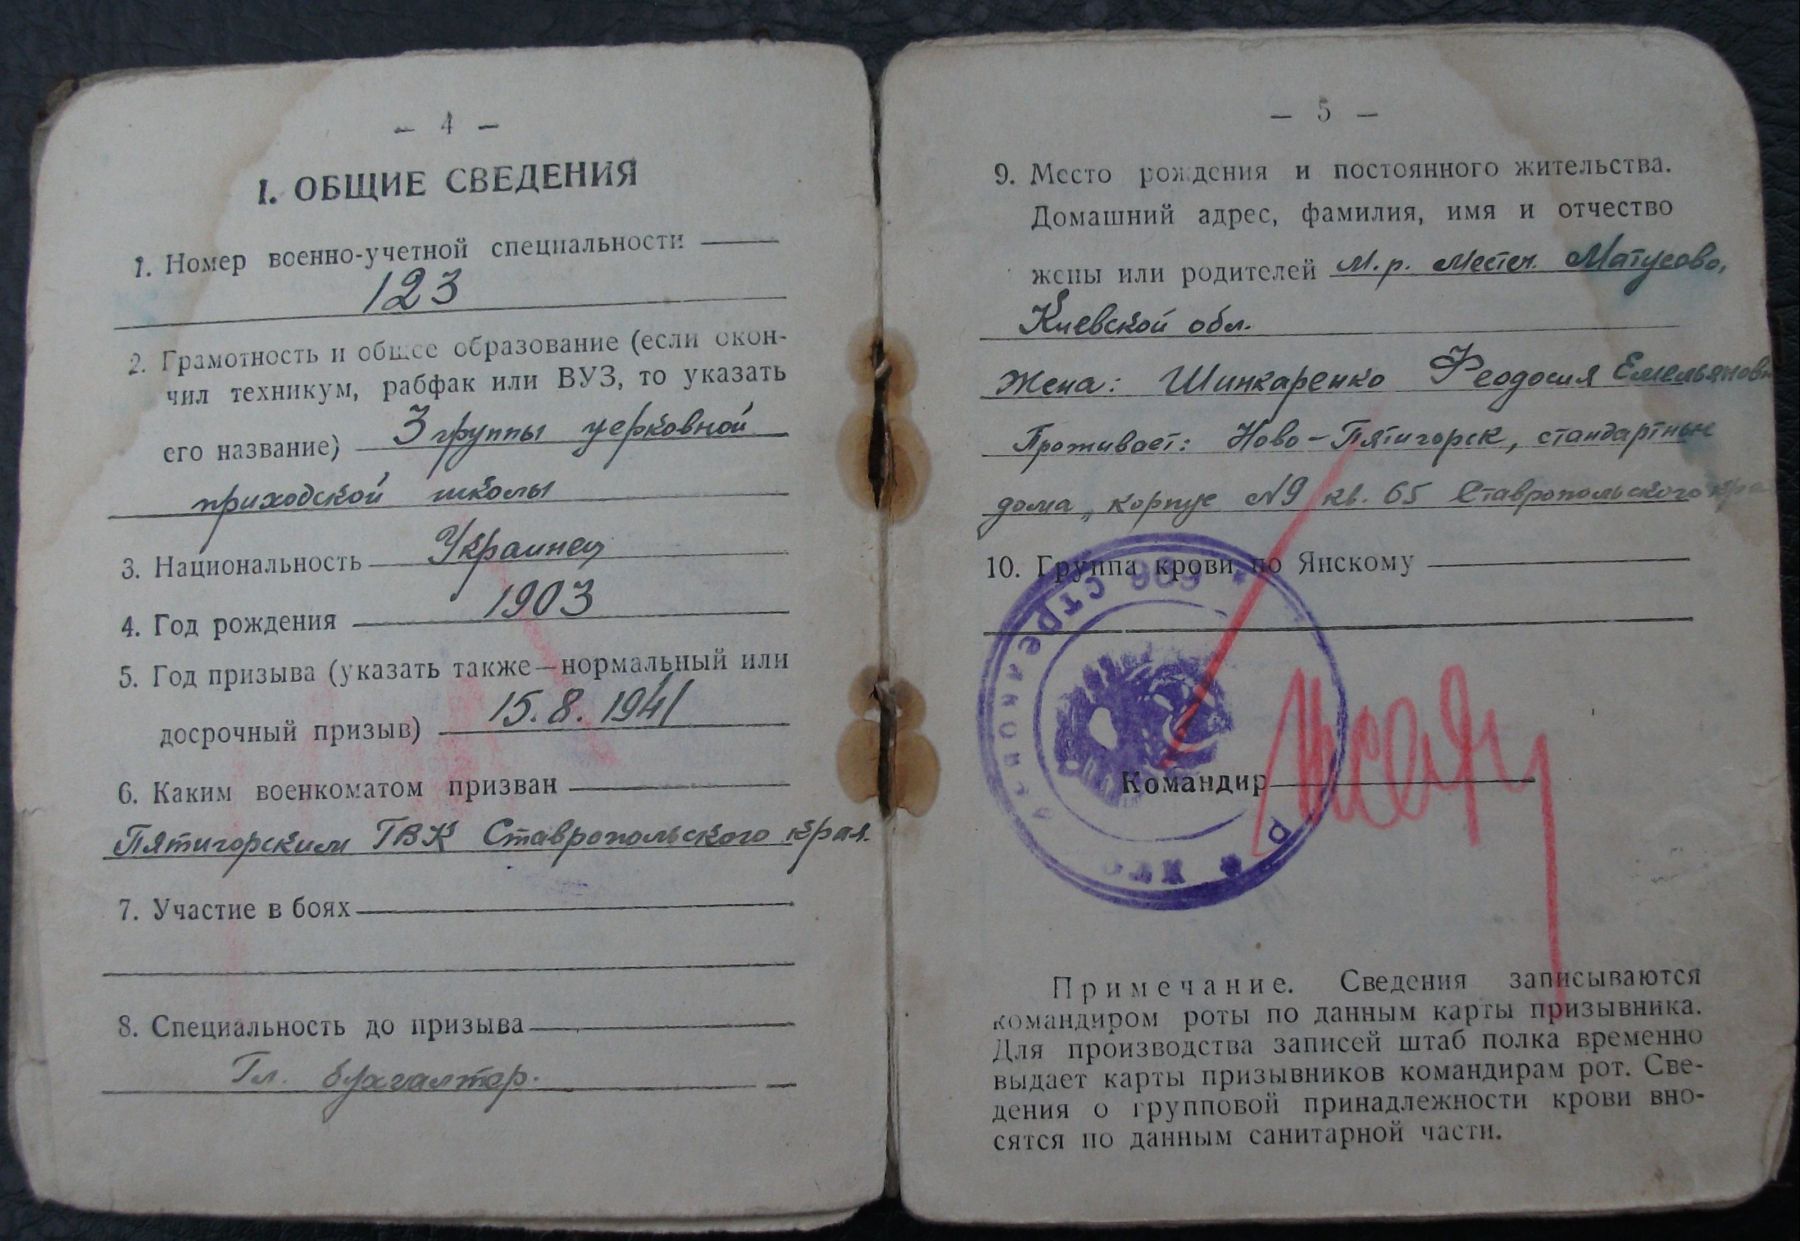 — 4 —
I. ОБЩИЕ СВЕДЕНИЯ
1. Номер военно-учетной специальности
123
2. Грамотность и общее образование (если окон-
чил техникум, рабфак или ВУЗ, то указать
его название) 3 группы церковной
приходской школы
3. Национальность Украинец
4. Год рождения 1903
5. Год призыва (указать также — нормальный или
досрочный призыв) 15.8.1941
6. Каким военкоматом призван
Пятигорским ГВК Ставропольского края.
7. Участие в боях
8. Специальность до призыва
Гл. бухгалтер.
— 5 —
9. Место рождения и постоянного жительства.
Домашний адрес, фамилия, имя и отчество
жены или родителей М.р. Местеч. Матусово,
Киевской обл.
Жена: Шинкаренко Феодосия Емельяновн
Проживает: Ново-Пятигорск, стандартные
дома, корпус №9 кв. 65 Ставропольского кра
10. Группа крови по Янскому
606 СТРЕЛКОВ
Командир
Примечание. Сведения записываются
командиром роты по данным карты призывника.
Для производства записей штаб полка временно
выдает карты призывников командирам рот. Све-
дения о групповой принадлежности крови вно-
сятся по данным санитарной части.